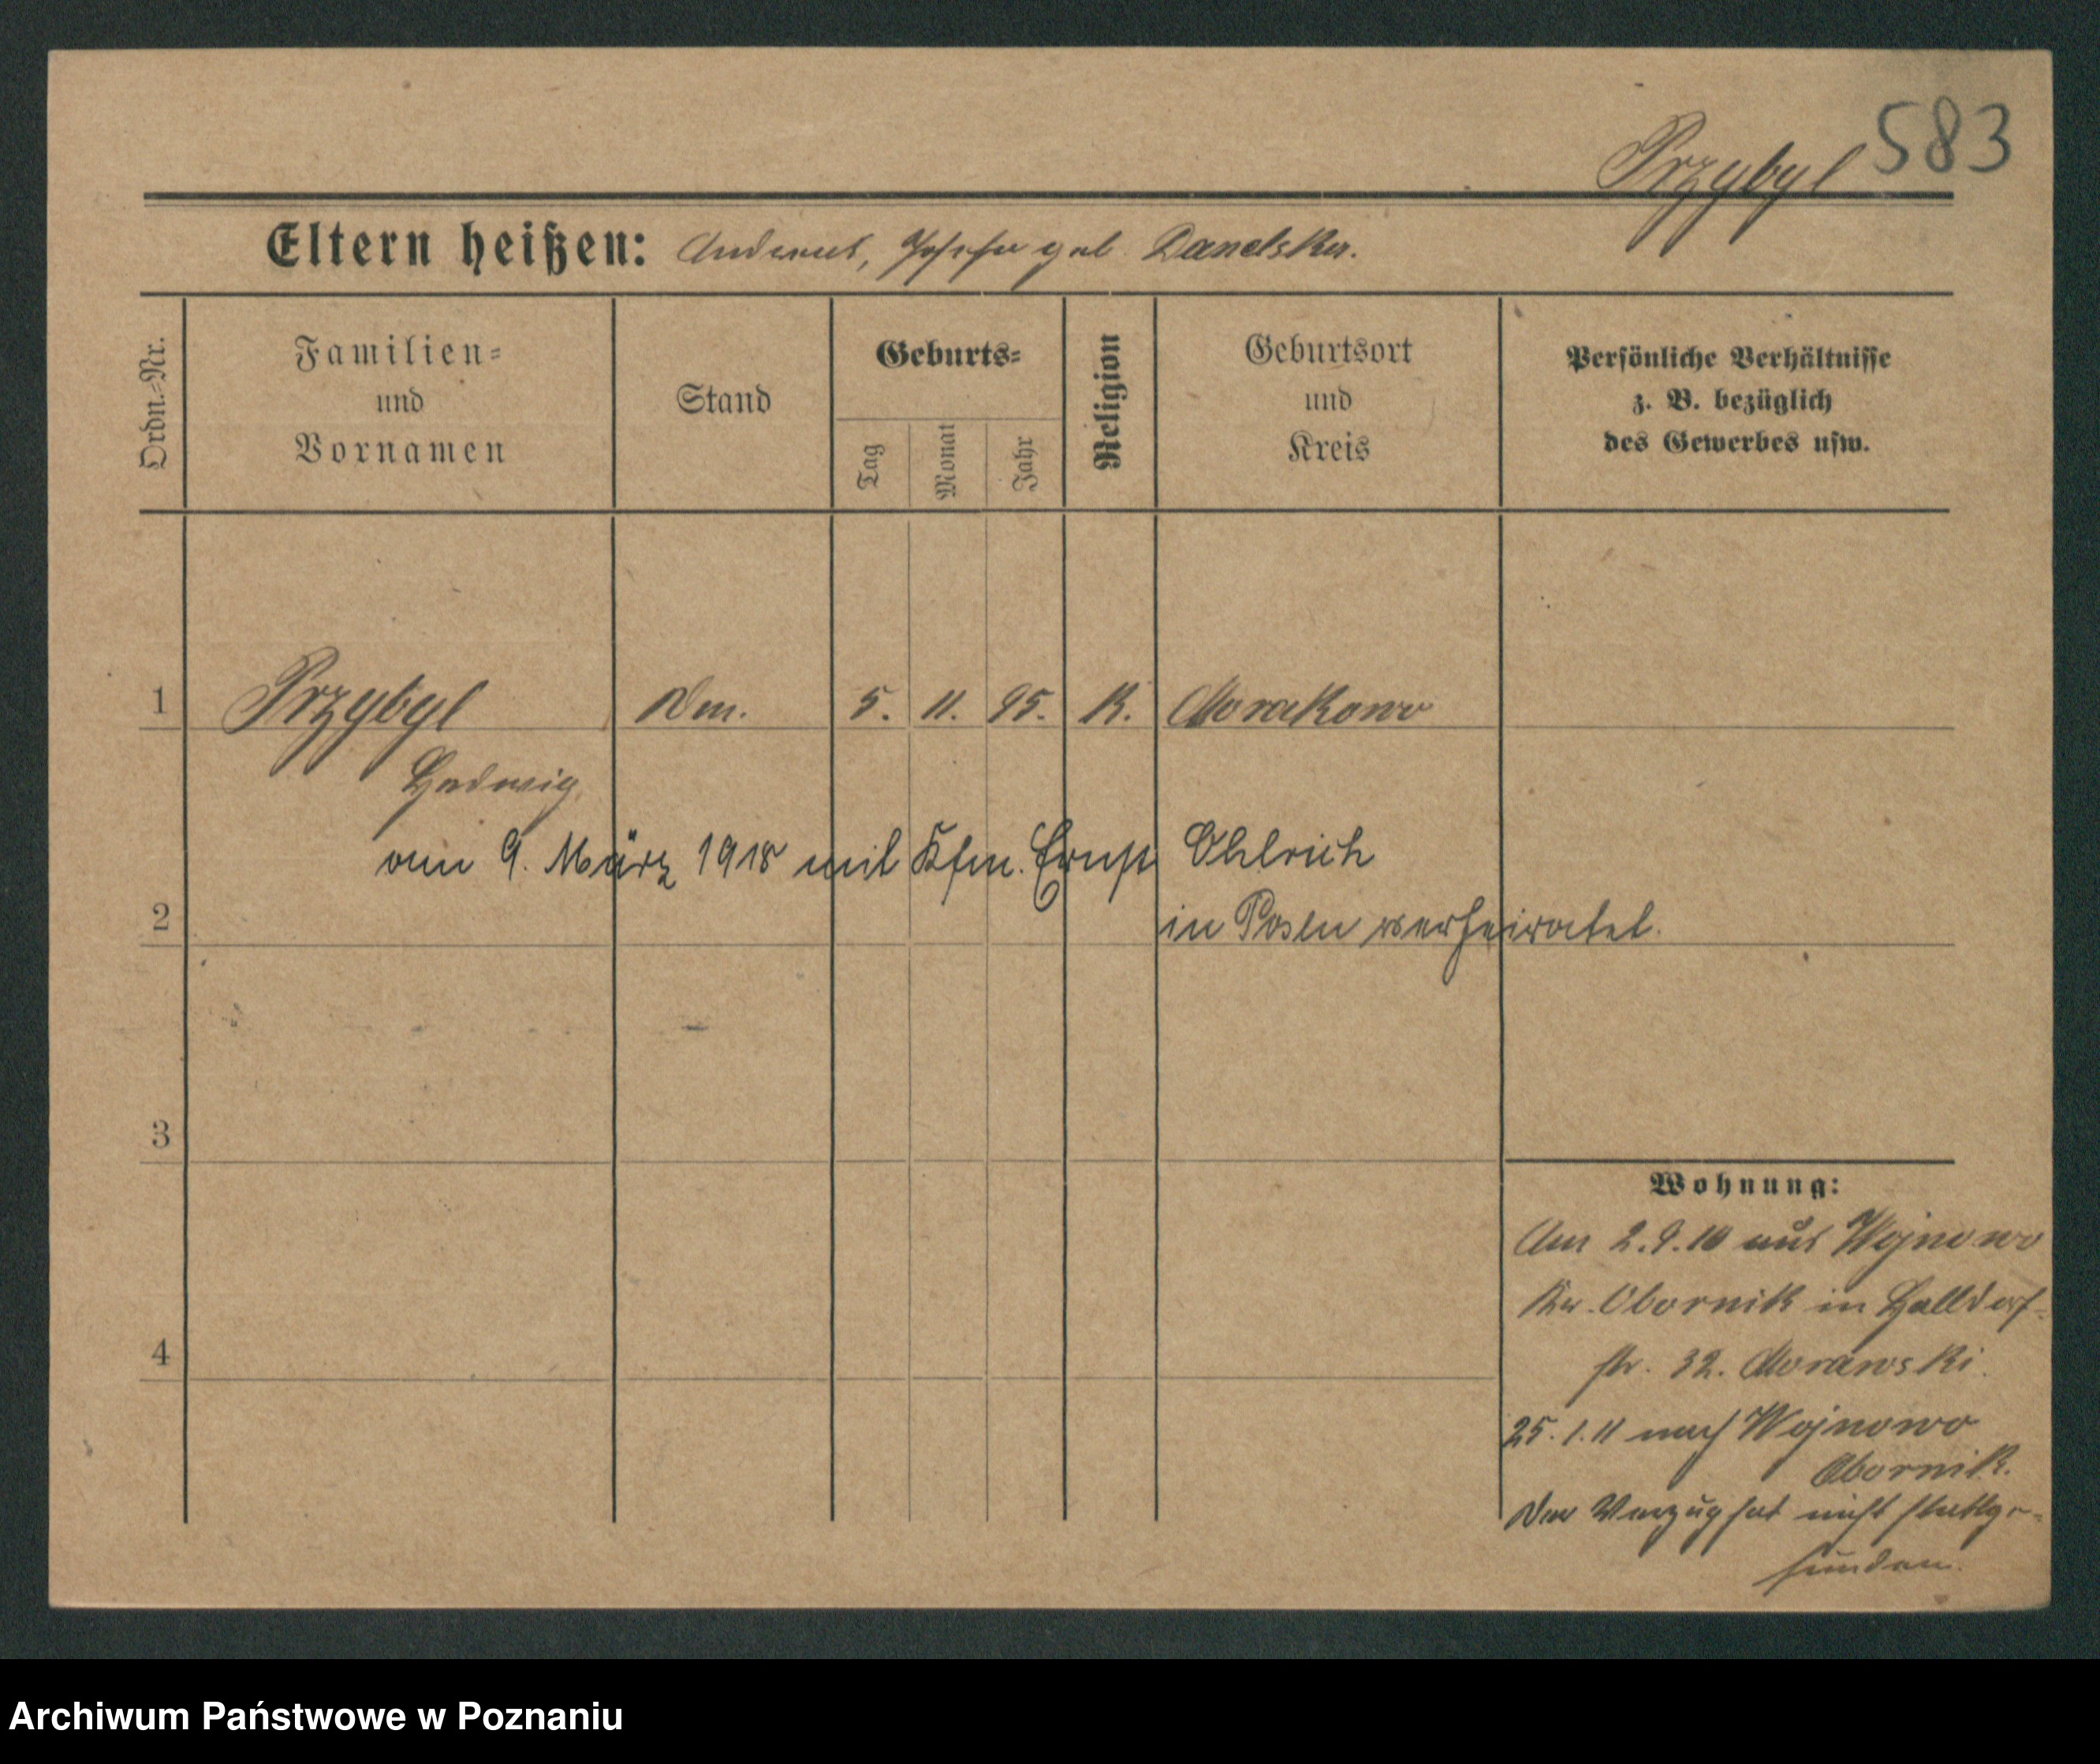 583
Przybyl
Eltern heißen: Andreas, Josefa geb. Danelska.
Ordn.-Nr.
Familien-
und
Vornamen
Stand
Geburts-
Tag
Monat
Jahr
Religion
Geburtsort
und
Kreis
Persönliche Verhältnisse
z. B. bezüglich
des Gewerbes usw.
1 Przybyl 5. 11. 95. K. Morakowo
Hedwig
am 9. März 1918 mit Kfm. Ernst Ohlrich
2 in Posen verheiratet.
3
4
Wohnung:
Am 2.9.10 aus Wojnowo
Kr. Obornik in Halldorf-
str. 32. Morawski.
25.1.11 nach Wojnowo
Obornik.
Der Verzug hat nicht stattge-
funden.
Archiwum Państwowe w Poznaniu